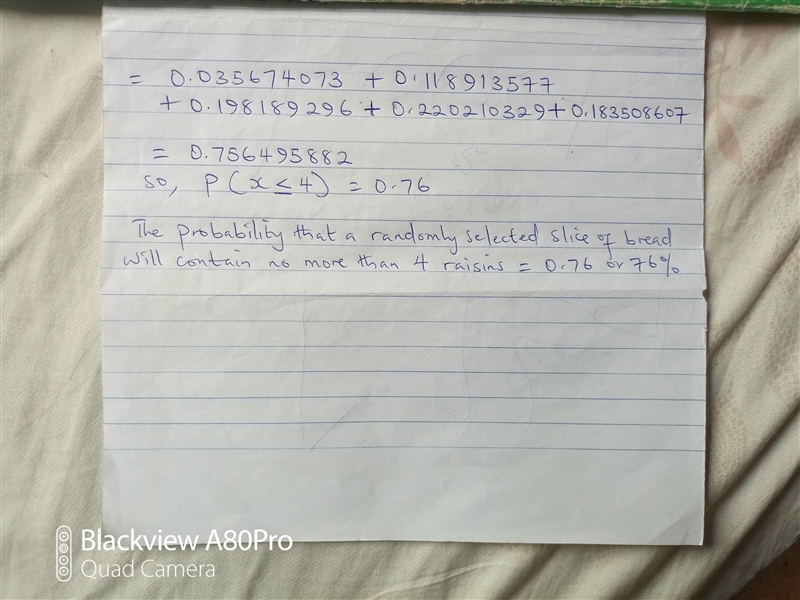 = 0.035674073 + 0.118913577
+ 0.198189296 + 0.220210329 + 0.183508607
= 0.756495882
so, P(x ≤ 4) = 0.76
The probability that a randomly selected slice of bread
will contain no more than 4 raisins = 0.76 or 76%
Blackview A80Pro
Quad Camera